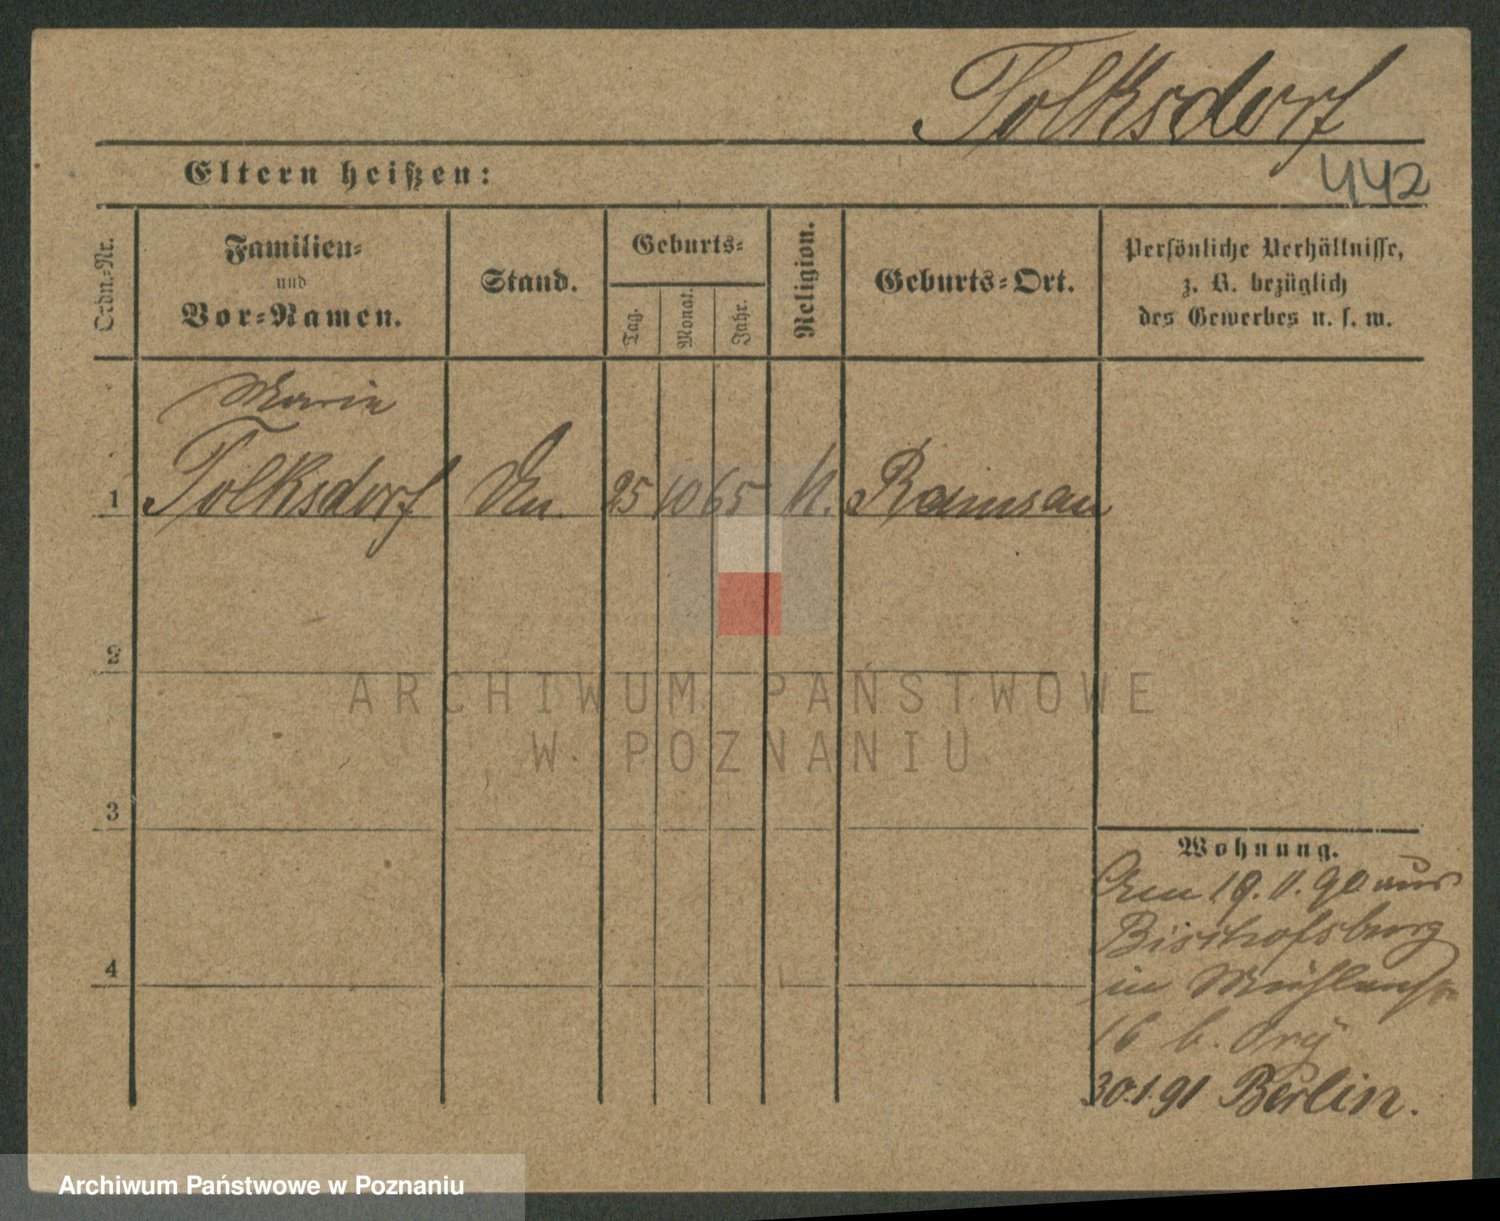 Tolksdorf
442
Eltern heißen:
Ordn.-Nr.
Familien-
und
Vor-Namen.
Stand.
Geburts-
Tag.
Monat.
Jahr.
Religion.
Geburts-Ort.
Persönliche Verhältnisse,
z. B. bezüglich
des Gewerbes u. s. w.
Marie
1 Tolksdorf 25 10 65 K. Ramsau
2
3
4
Wohnung.
19.11.90 aus
Bischofsburg
in Mühlenstr
16 b.
30.1.91 Berlin.
ARCHIWUM PAŃSTWOWE
W POZNANIU
Archiwum Państwowe w Poznaniu